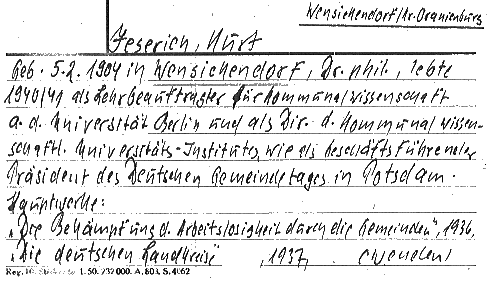 Wensickendorf/Kr. Oranienburg
Jeserich, Kurt
Geb. 5.2.1904 in Wensickendorf, Dr. phil., lebte
1940/41 als Lehrbeauftragter für Kommunalwissenschaft
a. d. Universität Berlin und als Dir. d. Kommunalwissen-
schaftl. Universitäts-Institutes, wie als Geschäftsführender
Präsident des Deutschen Gemeindetages in Potsdam.
Hauptwerke:
"Die Bekämpfung d. Arbeitslosigkeit durch die Gemeinden", 1936,
"Die deutschen Landkreise", 1937, (Wenden)
1. 50. 232000. A. 803. S. 4062